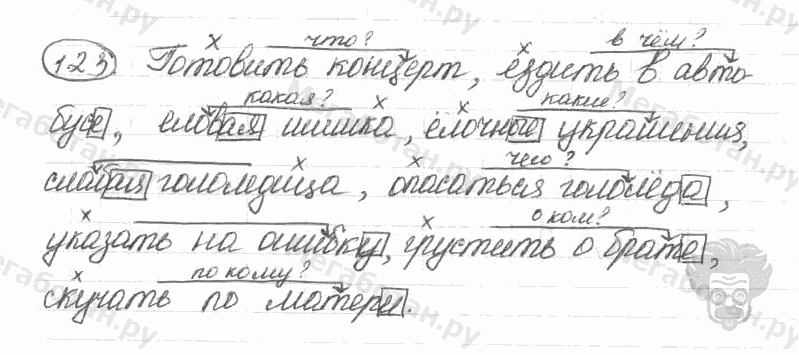 что? в чём?
123 Готовить концерт, ездить в авто-
какая? какие?
бусе, еловая шишка, ёлочные украшения,
чего?
слабая гололедица, опасаться гололёда,
о ком?
указать на ошибку, грустить о брате,
по кому?
скучать по матери.